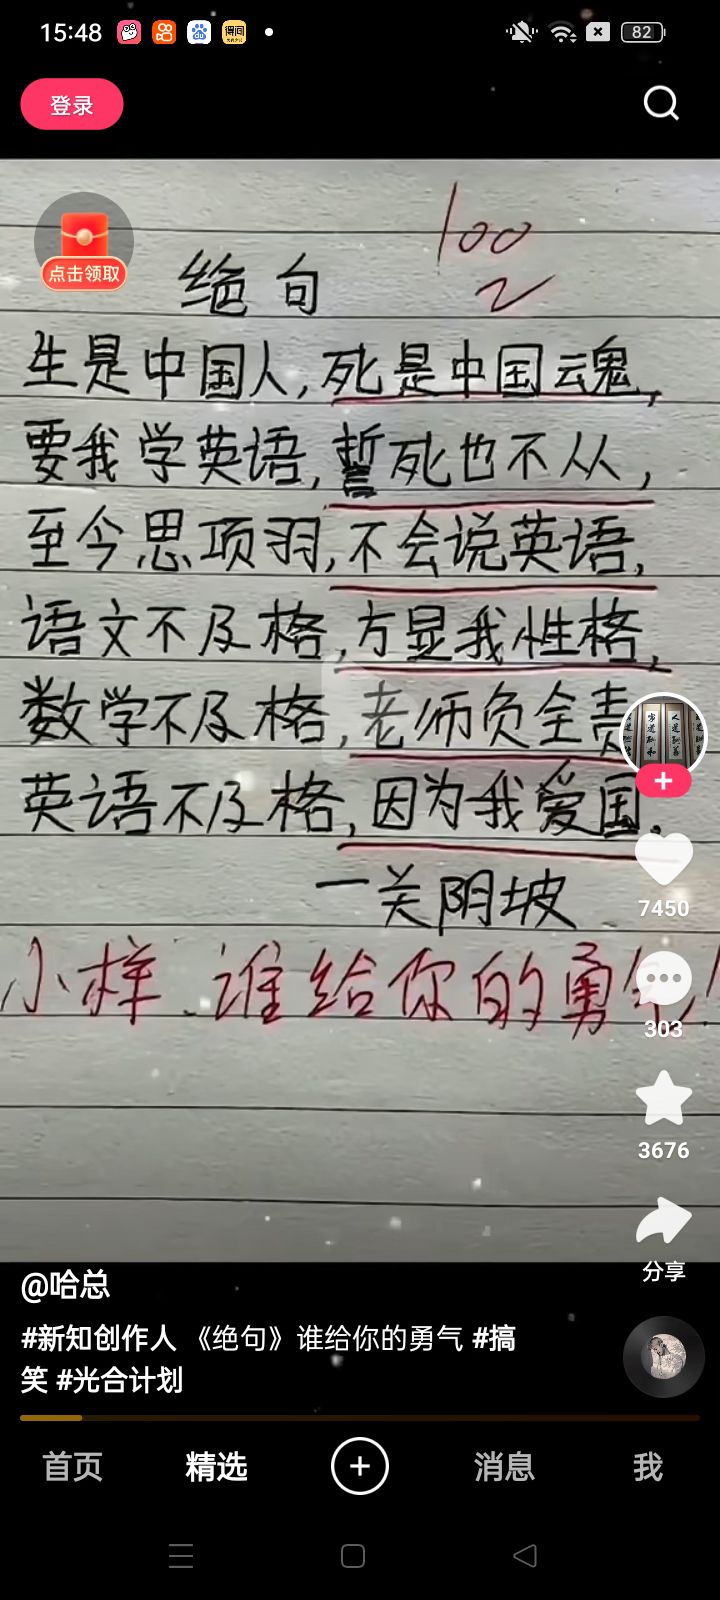 15:48
得间
82
登录
点击领取
100
绝句
生是中国人,死是中国云鬼,
要我学英语,誓死也不从,
至今思项羽,不会说英语,
语文不及格,方显我性格,
数学不及格,老师负全责
英语不及格,因为我爱国.
一关阴坡
小样.谁给你的勇气!
7450
303
3676
分享
@哈总
#新知创作人 《绝句》谁给你的勇气 #搞
笑 #光合计划
首页 精选 消息 我